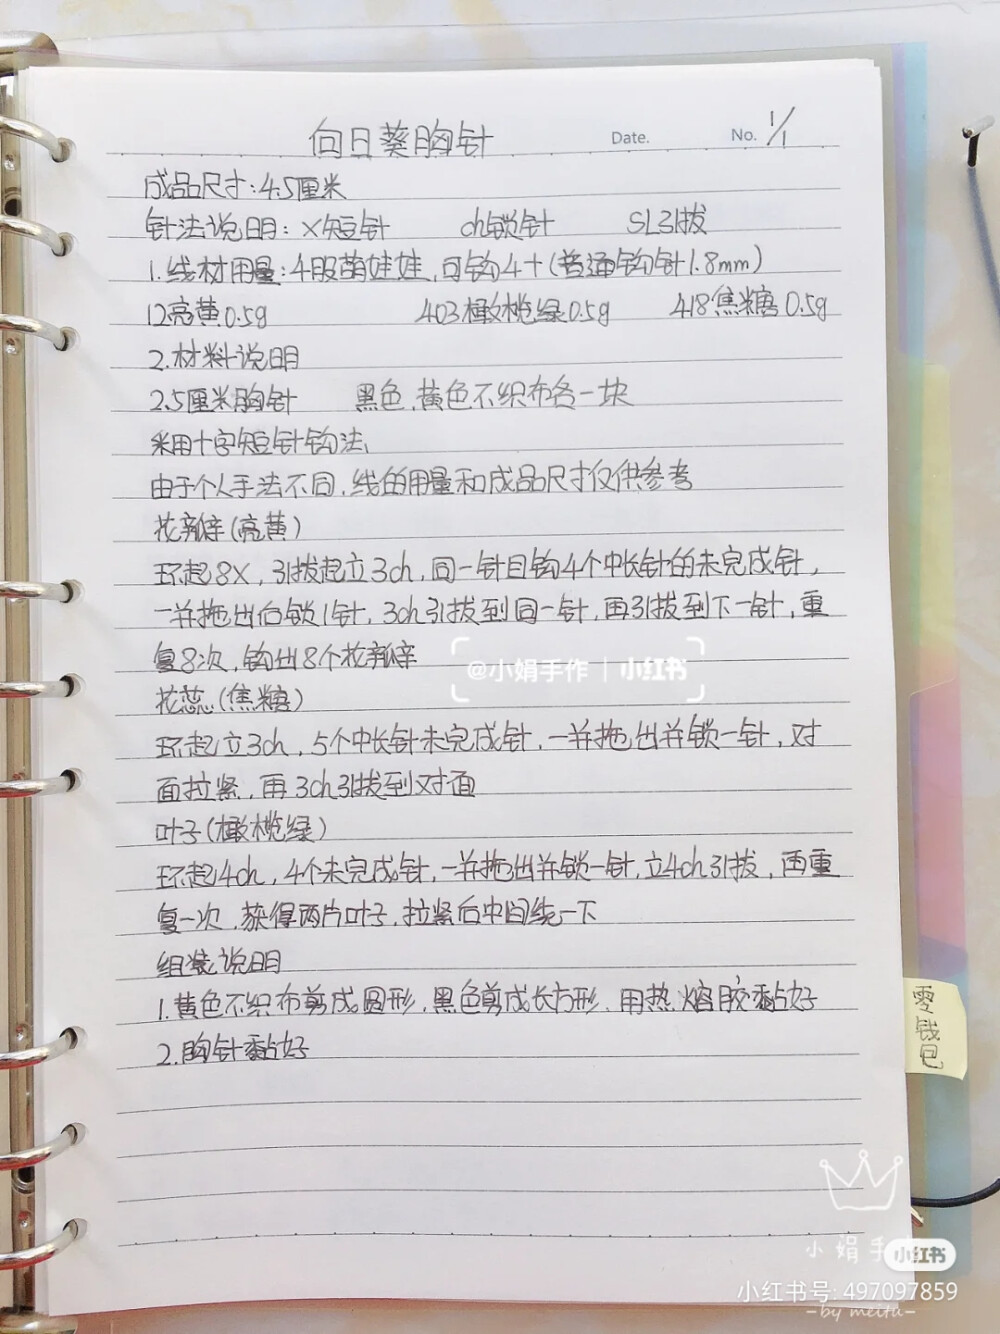 向日葵胸针
Date.
No. 1/1
成品尺寸:4.5厘米
针法说明: X短针 ch锁针 SL引拔
1.线材用量:4股萌娃娃,可钩4个(普通钩针1.8mm)
12亮黄0.5g 403橄榄绿0.5g 418焦糖0.5g
2.材料说明
2.5厘米胸针 黑色,黄色不织布各一块
采用十字短针钩法,
由于个人手法不同,线的用量和成品尺寸仅供参考
花瓣(亮黄)
环起8X,引拔起立3ch,同一针目钩4个中长针的未完成针,
一并拖出后锁1针,3ch引拔到同一针,再引拔到下一针,重
复8次,钩出8个花瓣
花蕊(焦糖)
环起立3ch,5个中长针未完成针,一并拖出并锁一针,对
面拉紧,再3ch引拔到对面
叶子(橄榄绿)
环起4ch,4个未完成针,一并拖出并锁一针,立4ch引拔,再重
复一次,获得两片叶子,拉紧后中间绕一下
组装说明
1.黄色不织布剪成圆形,黑色剪成长方形,用热熔胶黏好
2.胸针黏好
零钱包
@小娟手作 | 小红书
小娟手
小红书
小红书号: 497097859
-by meitu-